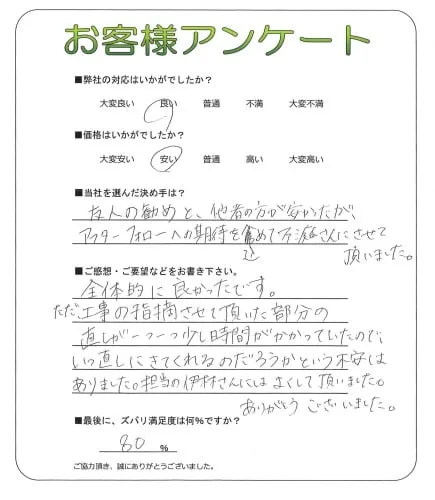 お客様アンケート
■弊社の対応はいかがでしたか？
大変良い 良い 普通 不満 大変不満
■価格はいかがでしたか？
大変安い 安い 普通 高い 大変高い
■当社を選んだ決め手は？
友人の勧めと、他者の方が安かったが、
アフターフォローへの期待を含めて さんにさせて
頂いました。
■ご感想・ご要望などをお書き下さい。
全体的に良かったです。
ただ、工事の指摘させて頂いた部分の
直しが一つ一つ少し時間がかかっていたので、
いつ直しにきてくれるのだろうかという不安は
ありました。担当の伊林さんにはよくして頂いました。
ありがとうございました。
■最後に、ズバリ満足度は何％ですか？
80 %
ご協力頂き、誠にありがとうございました。